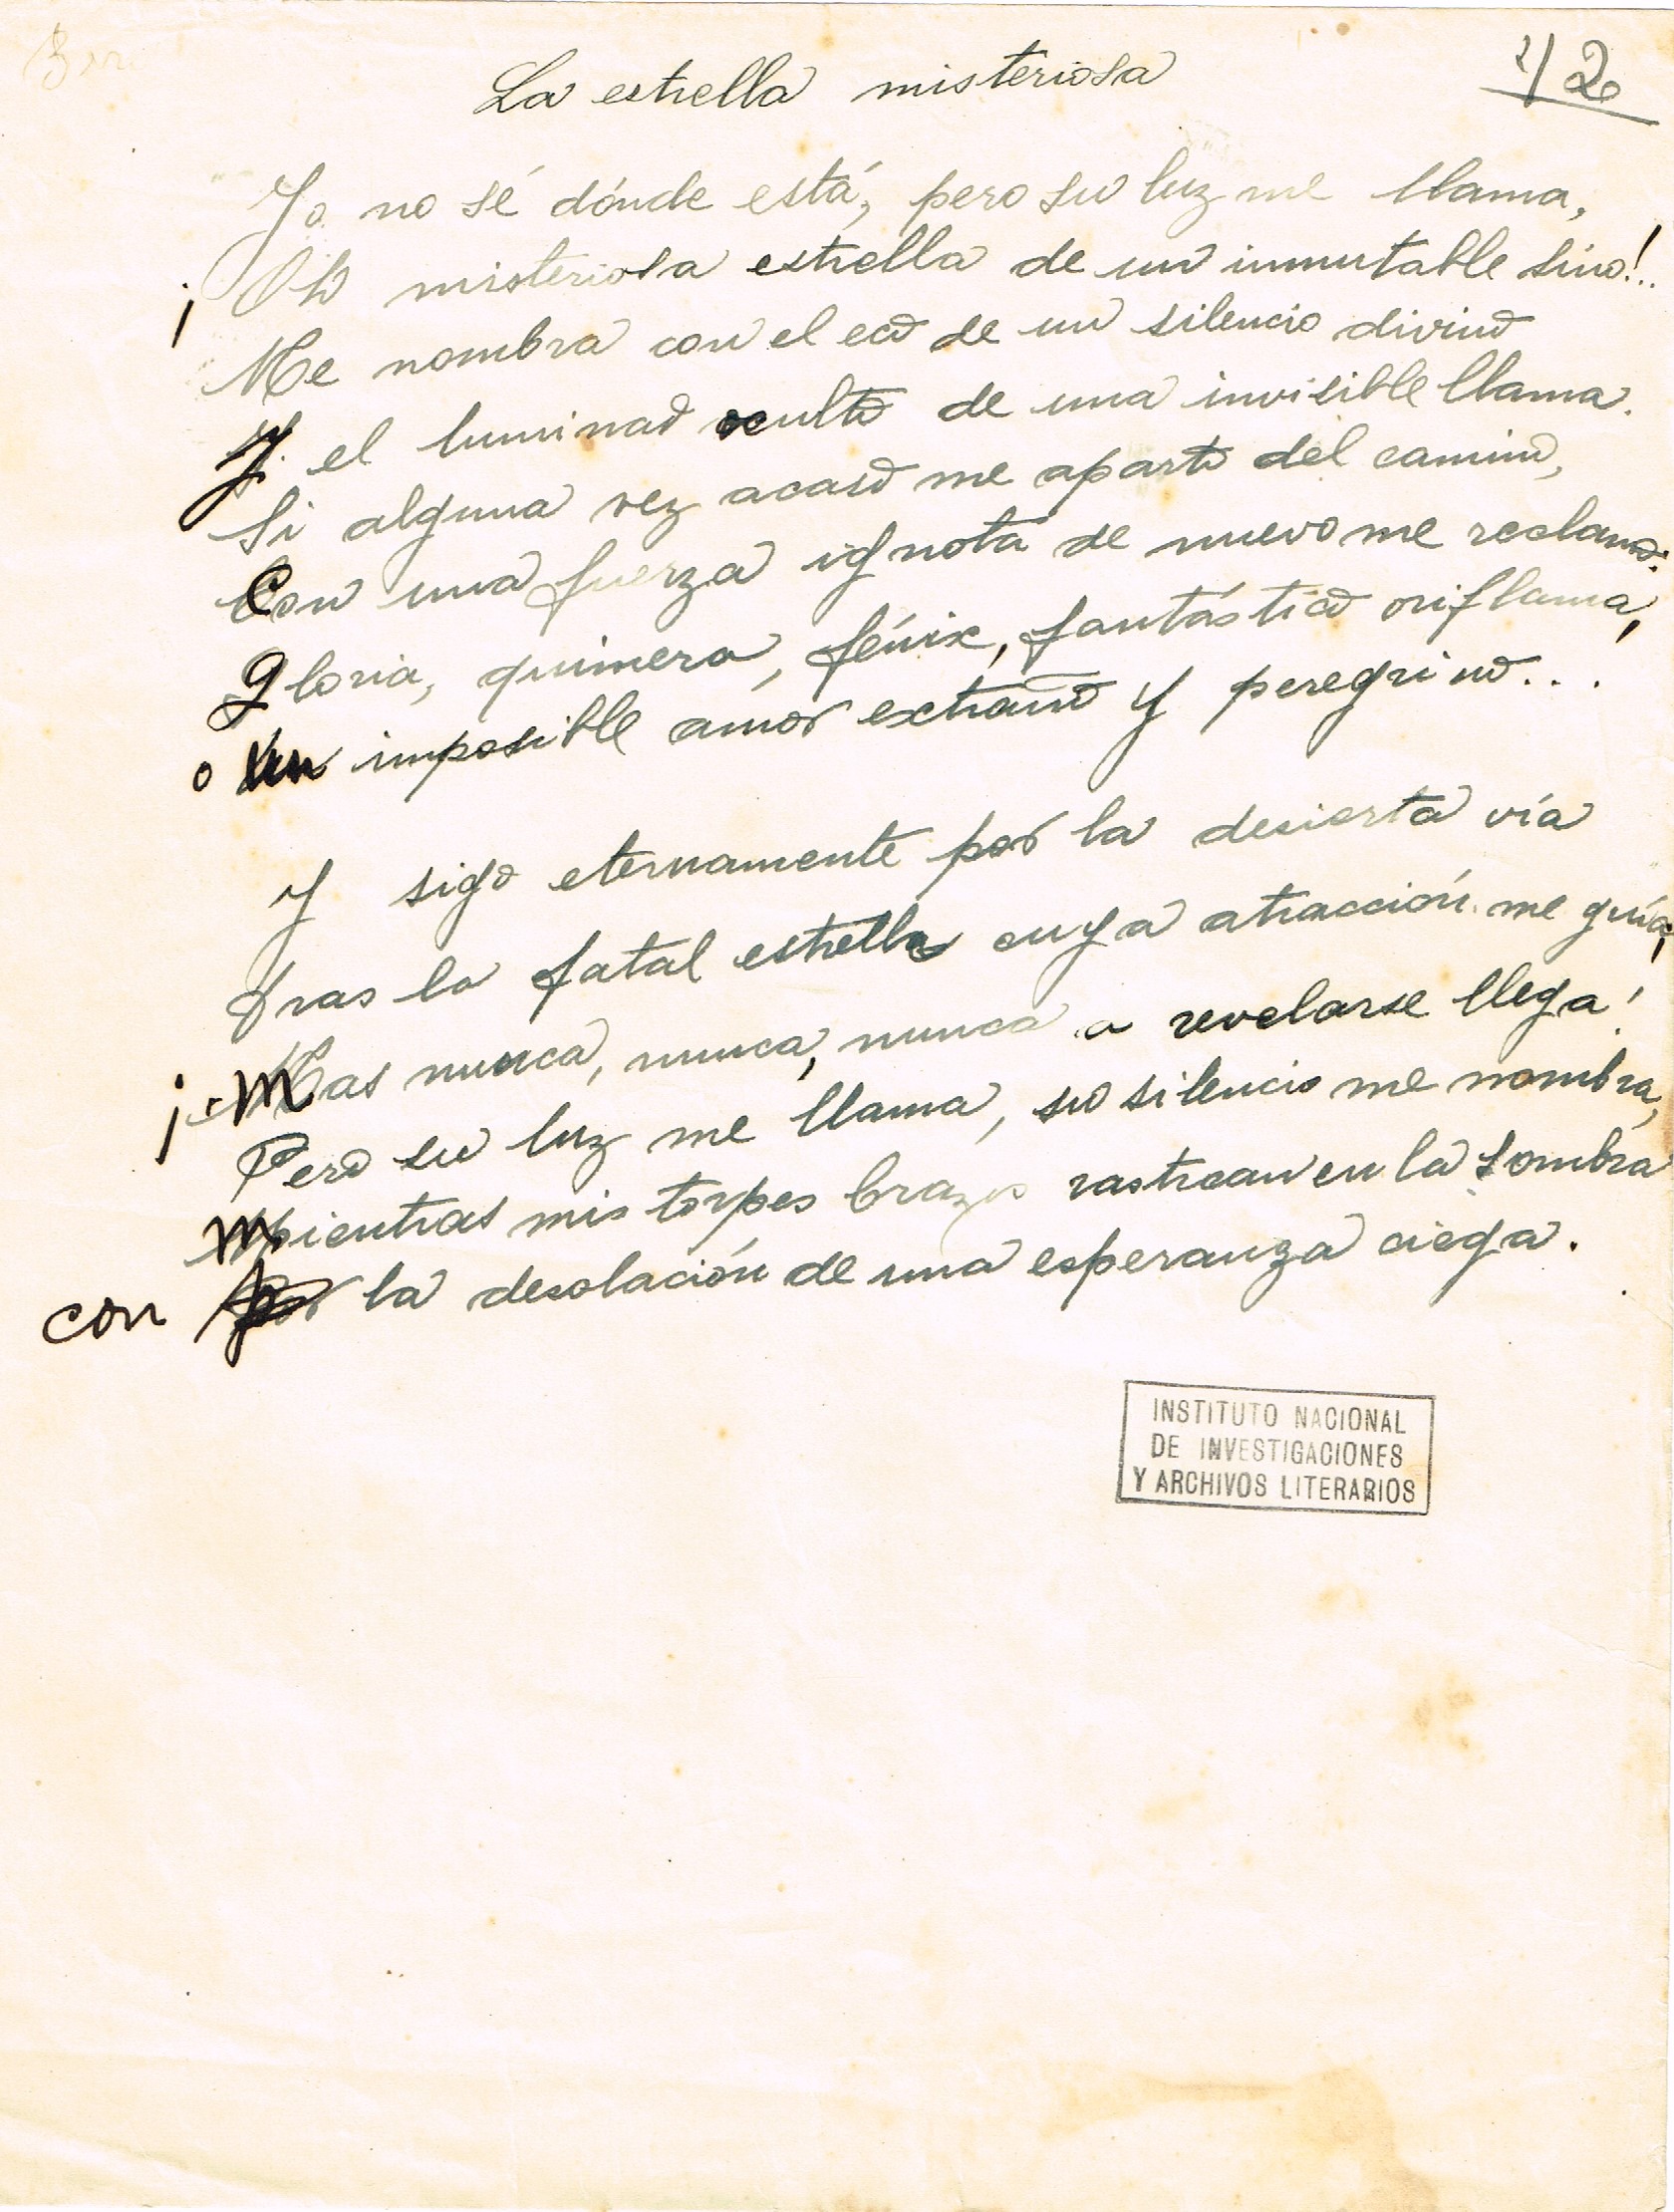 La estrella misteriosa
Yo no sé dónde está, pero su luz me llama,
¡Oh misteriosa estrella de un inmutable sino!..
Me nombra con el eco de un silencio divino
Y el luminar oculto de una invisible llama.
Si alguna vez acaso me aparto del camino,
Con una fuerza ignota de nuevo me reclama:
Gloria, quimera, fénix, fantástico oriflama,
o un imposible amor extraño y peregrino...
Y sigo eternamente por la desierta vía
tras la fatal estrella cuya atracción me guía,
¡mas nunca, nunca, nunca a revelarse llega!
Pero su luz me llama, su silencio me nombra,
mientras mis torpes brazos rastrean en la sombra
con la desolación de una esperanza ciega.
INSTITUTO NACIONAL
DE INVESTIGACIONES
Y ARCHIVOS LITERARIOS